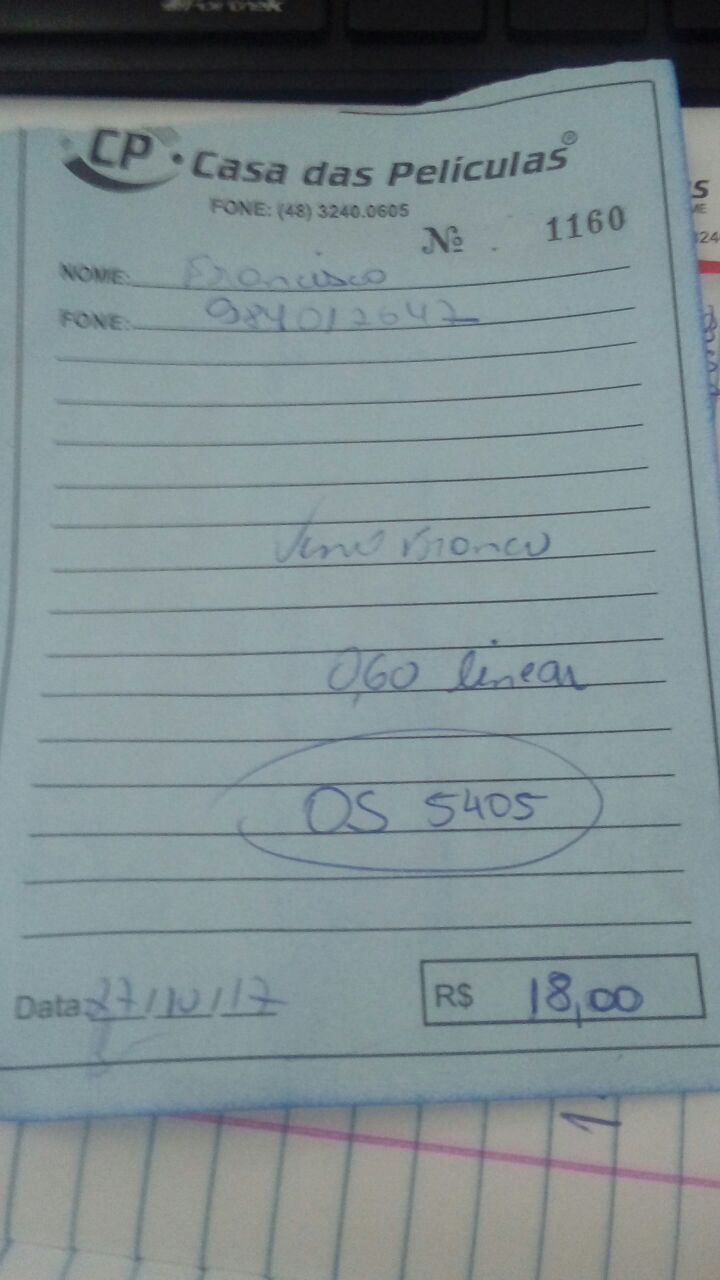 CP • Casa das Películas®
FONE: (48) 3240.0605
Nº 1160
NOME: Francisco
FONE: 984012642
Branco
0,60 linear
OS 5405
Data 27/10/17
R$ 18,00